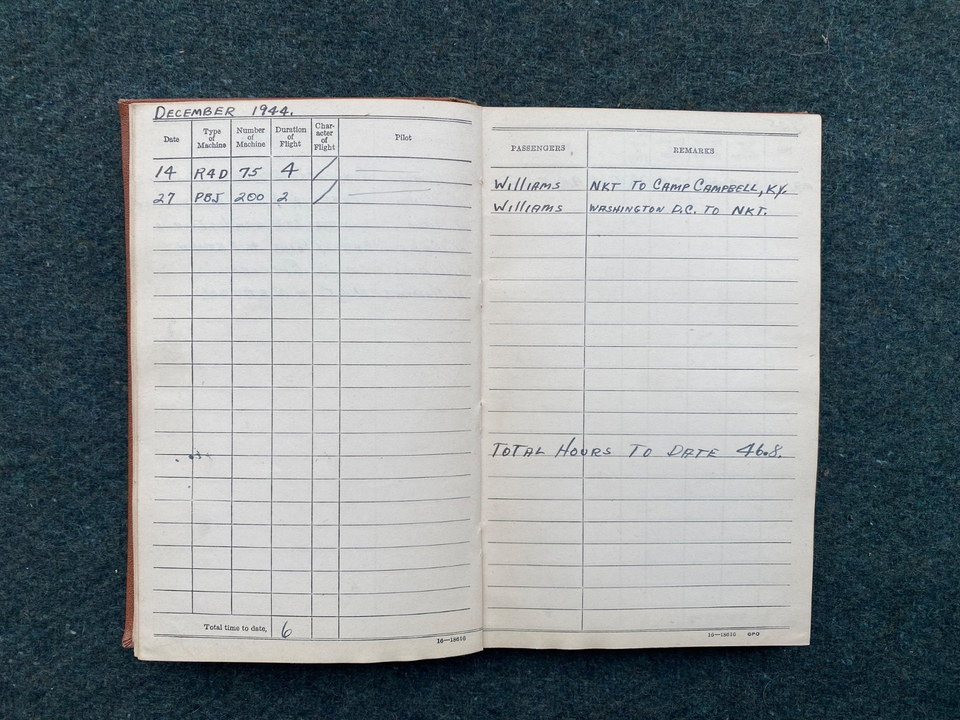 DECEMBER 1944.
Date Type of Machine Number of Machine Duration of Flight Char-acter of Flight Pilot
14 R4D 75 4 /
27 PBJ 200 2 /
Total time to date, 6
16—18616
PASSENGERS REMARKS
WILLIAMS NKT TO CAMP CAMPBELL, KY.
WILLIAMS WASHINGTON D.C. TO NKT.
TOTAL HOURS TO DATE 46.8.
16—18616 GPO